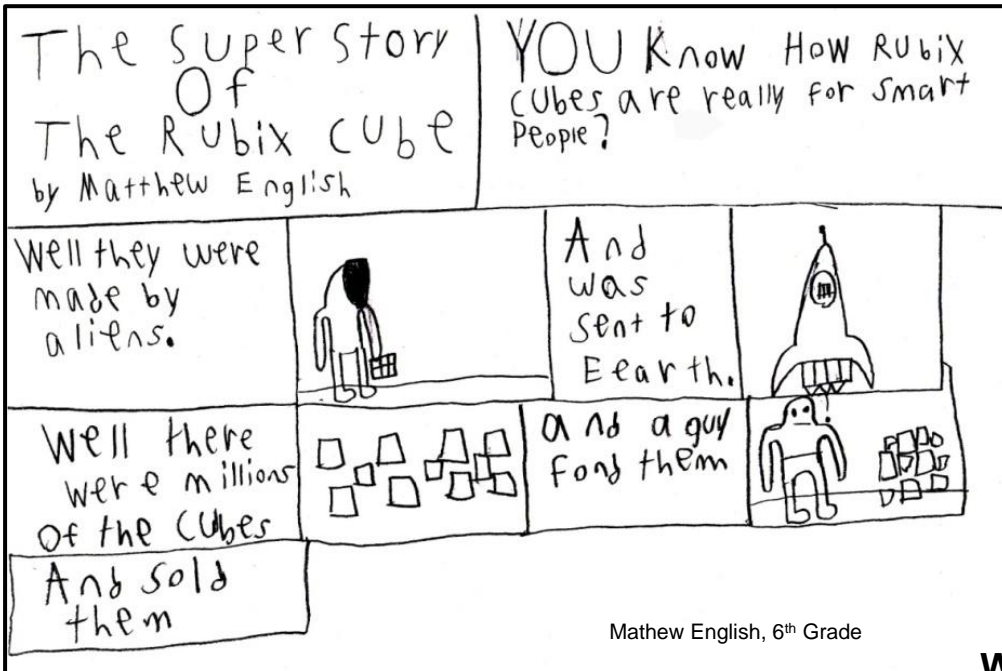 The Super Story
Of
The Rubix cube
by Matthew English
YOU Know How Rubix
cubes are really for smart
People?
Well they were
made by
aliens.
And
was
sent to
Eearth.
Well there
were millions
Of the cubes
and a guy
fond them
And sold
them
Mathew English, 6th Grade